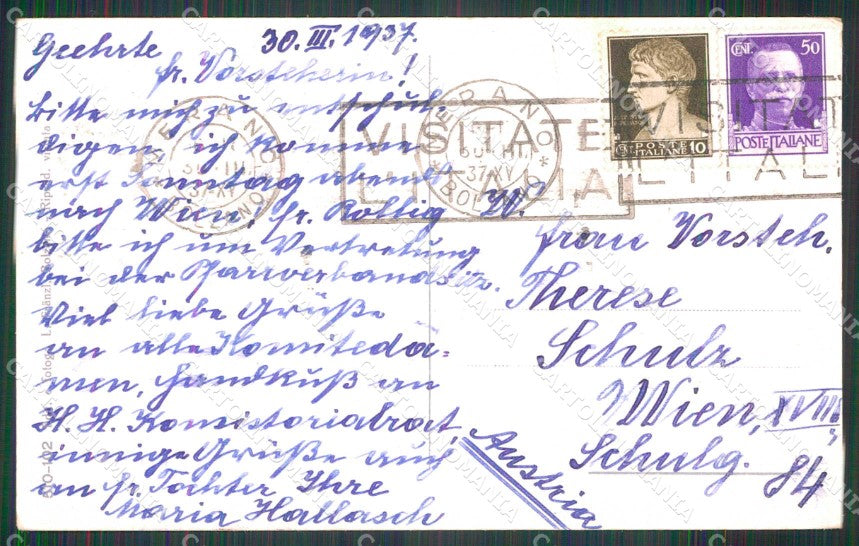 30. III. 1937.
Geehrte
Fr. Vorsteherin!
Bitte mich zu entschul-
digen, ich komme
erst Sonntag abend
nach Wien! Fr. Rottig
bitte ich um Vertretung
bei der Pfarrverbandsitz.
Viel liebe Grüße
an alle Komitedä-
men, Handkuß an
H. H. Konsistorialrat,
innige Grüße auch
an Fr. Tochter Ihre
Maria Hallasch
W.
Frau Vorsteh.
Therese
Schulz
Wien, XVIII.,
Schulg.
84
Austria
POSTE
ITALIANE 10
CENT. 50
POSTE ITALIANE
MERANO
BOLZANO
30.III
37.XV
VISITATE
L'ITALIA
MERANO
BOLZANO
VISITATE
L'ITALIA
CARTOLINOMANIA